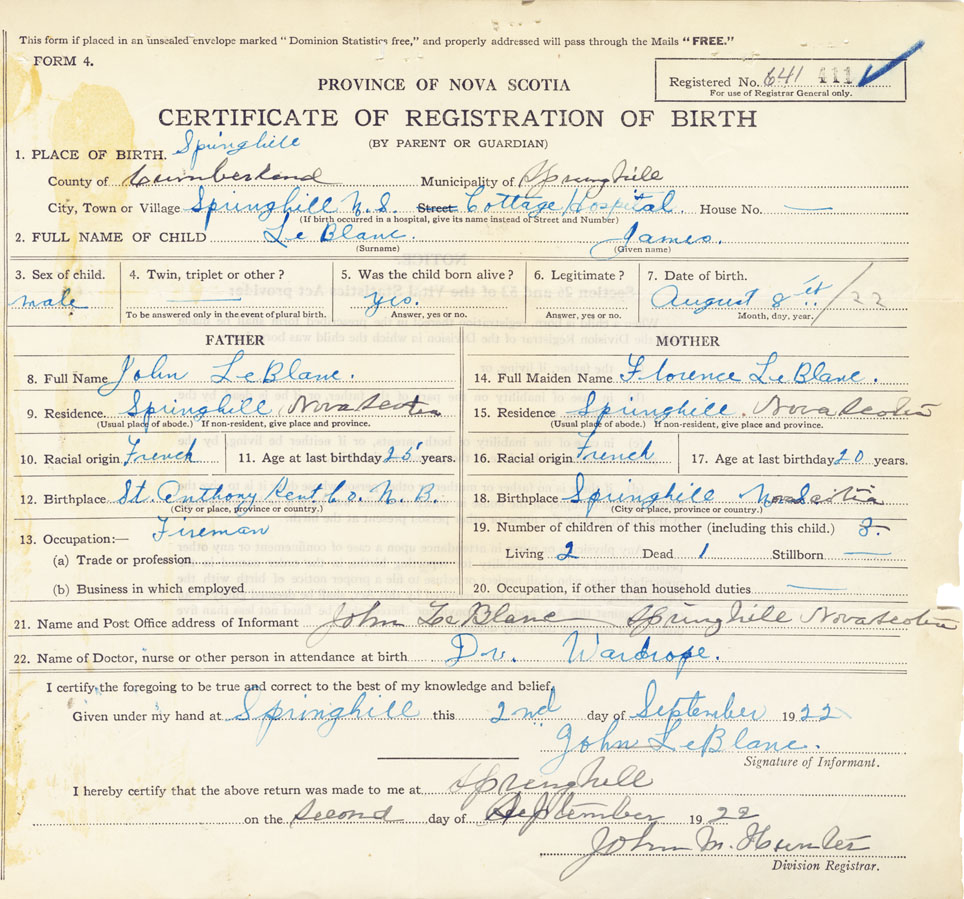 This form if placed in an unsealed envelope marked "Dominion Statistics free," and properly addressed will pass through the Mails "FREE."
FORM 4.
PROVINCE OF NOVA SCOTIA
Registered No. 641 411
For use of Registrar General only.
CERTIFICATE OF REGISTRATION OF BIRTH
(BY PARENT OR GUARDIAN)
1. PLACE OF BIRTH. Springhill
County of Cumberland Municipality of Springhill
City, Town or Village Springhill N.S. Street Cottage Hospital. House No. —
(If birth occurred in a hospital, give its name instead of Street and Number)
2. FULL NAME OF CHILD LeBlanc. James.
(Surname) (Given name)
3. Sex of child. 4. Twin, triplet or other? 5. Was the child born alive? 6. Legitimate? 7. Date of birth.
male — yes. August 8 /22
To be answered only in the event of plural birth. Answer, yes or no. Answer, yes or no. Month, day, year.
FATHER MOTHER
8. Full Name John LeBlanc. 14. Full Maiden Name Florence LeBlanc.
9. Residence Springhill Nova Scotia 15. Residence Springhill. Nova Scotia
(Usual place of abode.) If non-resident, give place and province. (Usual place of abode.) If non-resident, give place and province.
10. Racial origin French 11. Age at last birthday 25 years. 16. Racial origin French 17. Age at last birthday 20 years.
12. Birthplace St. Anthony Kent Co. N.B. 18. Birthplace Springhill N Scotia
(City or place, province or country.) (City or place, province or country.)
13. Occupation:— Fireman 19. Number of children of this mother (including this child.) 3.
(a) Trade or profession Living 2 Dead 1 Stillborn —
(b) Business in which employed 20. Occupation, if other than household duties —
21. Name and Post Office address of Informant John LeBlanc Springhill Nova Scotia
22. Name of Doctor, nurse or other person in attendance at birth Dr. Wardrope.
I certify the foregoing to be true and correct to the best of my knowledge and belief,
Given under my hand at Springhill this 2nd day of September 1922
John LeBlanc.
Signature of Informant.
I hereby certify that the above return was made to me at Springhill
on the second day of September 1922
John M. Hunter
Division Registrar.